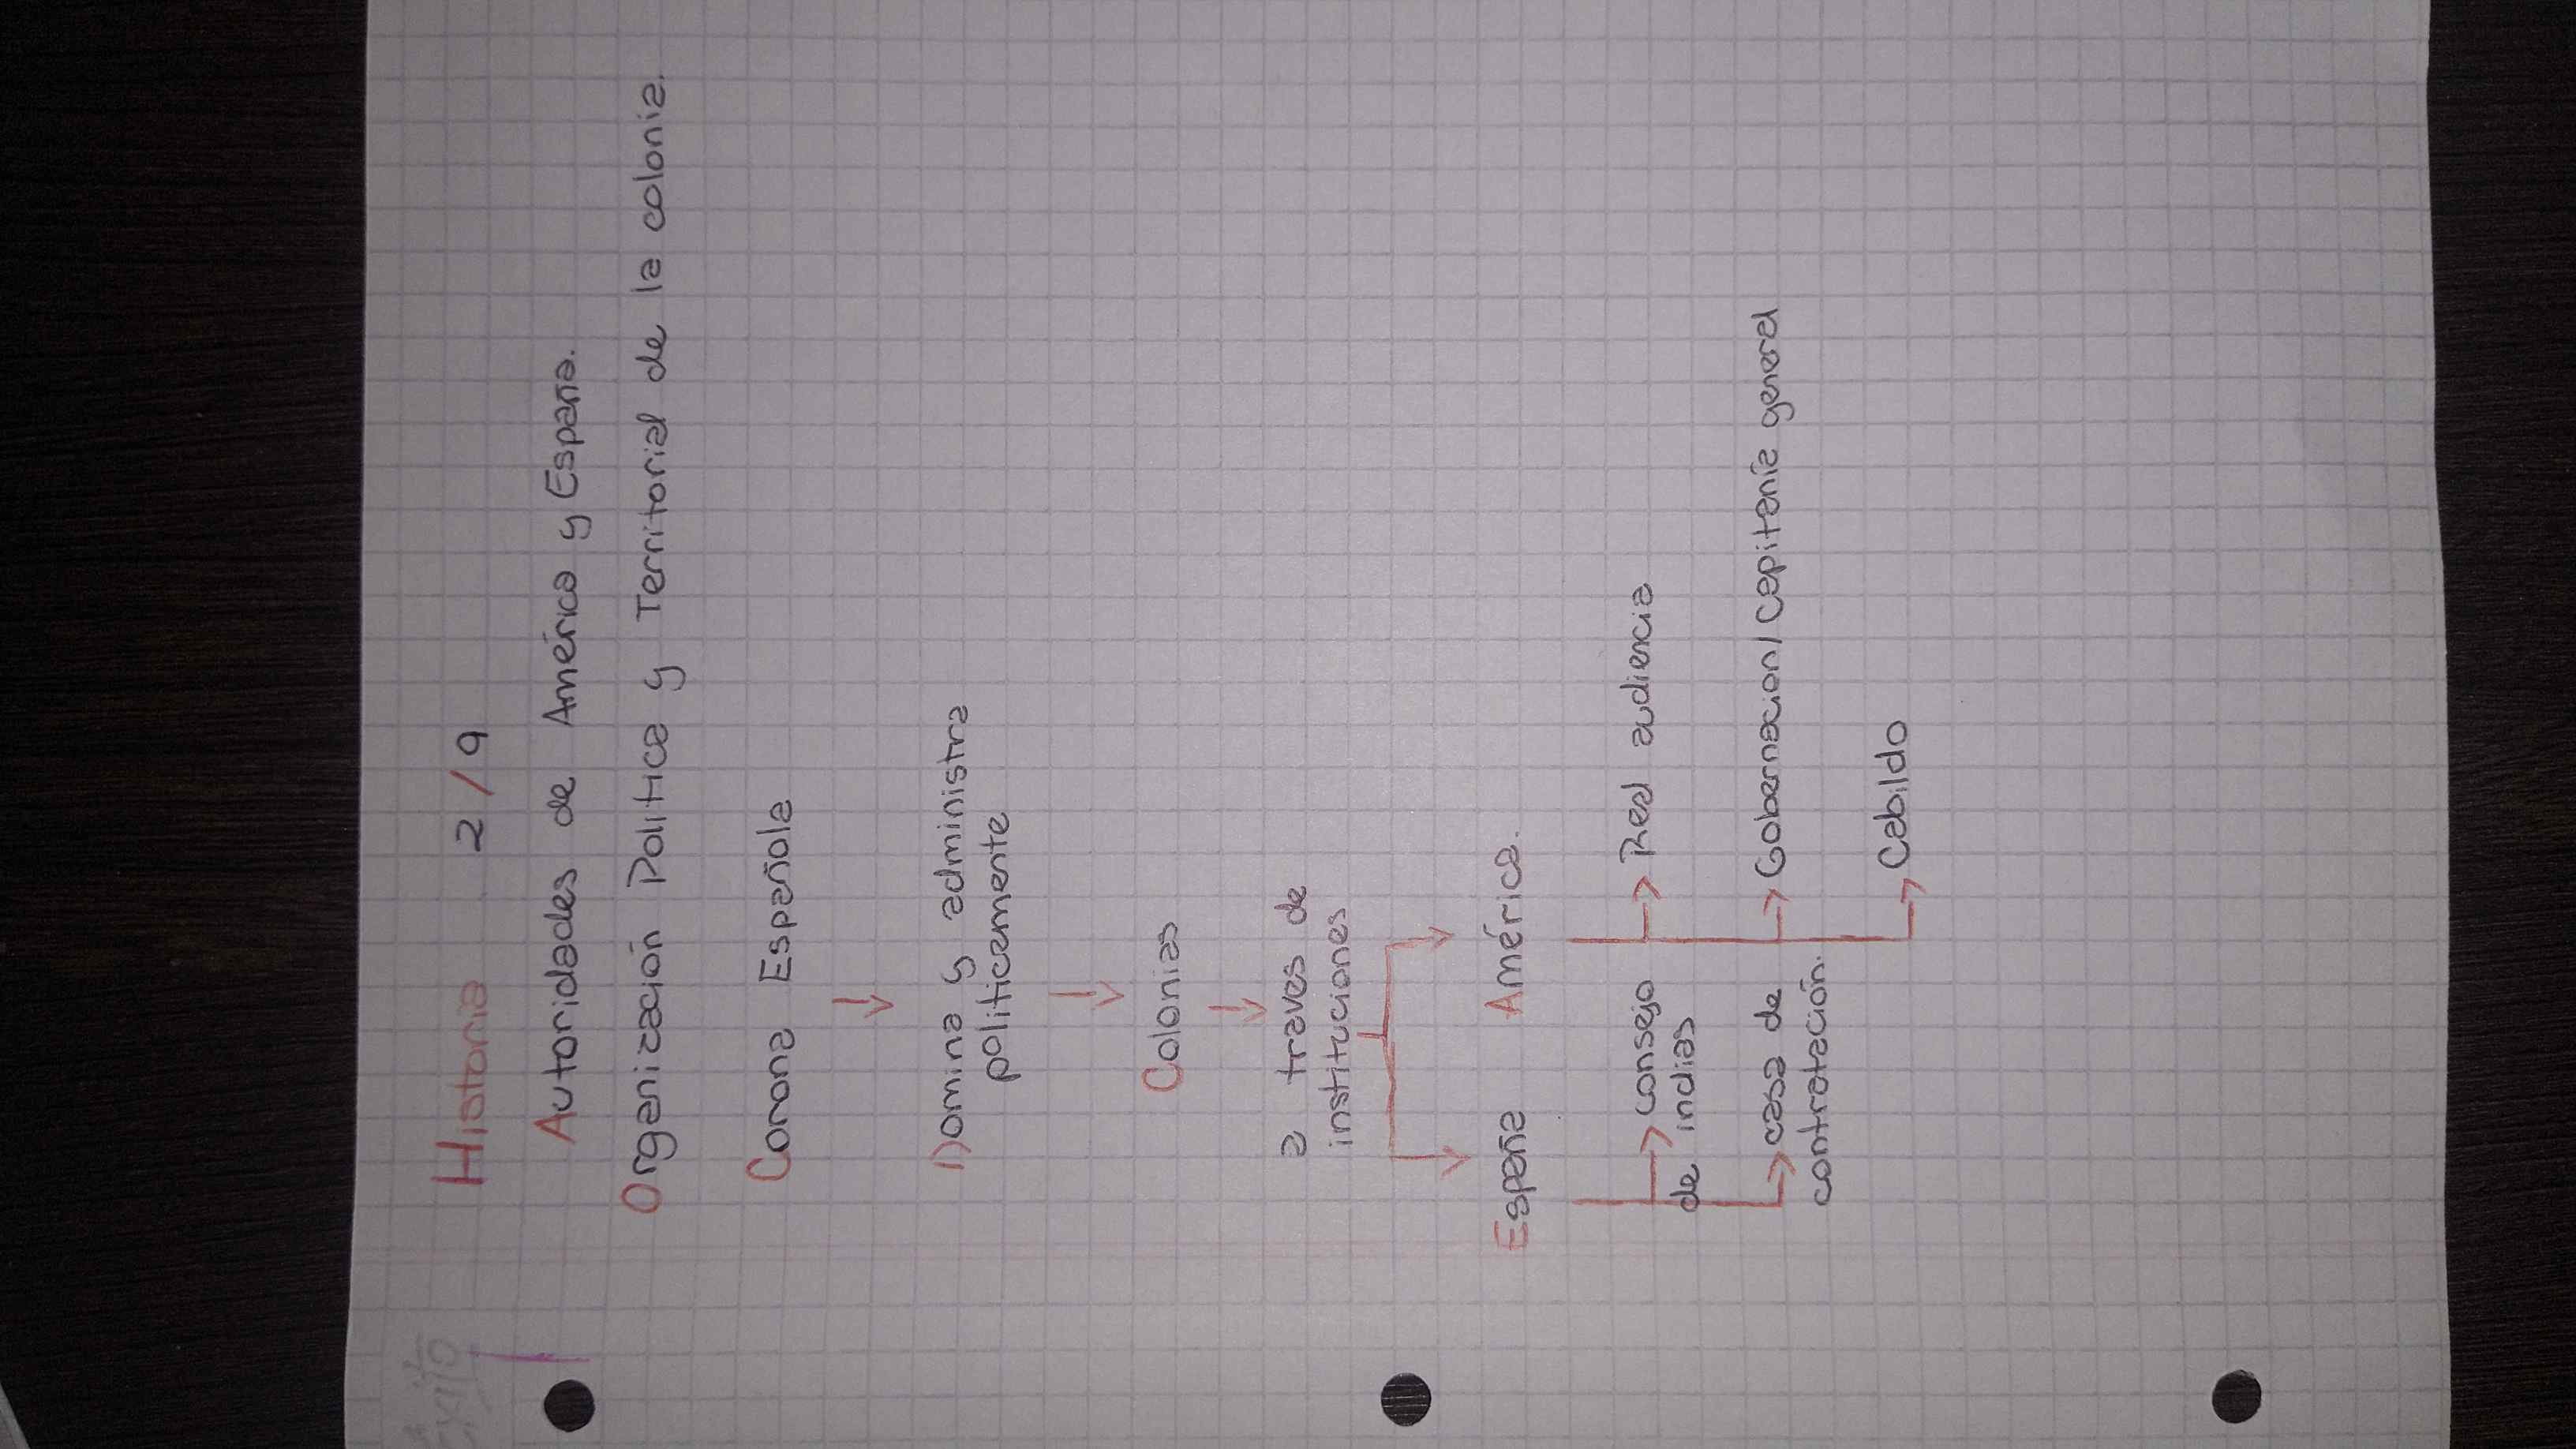 Historia 2/9
Autoridades de América y España.
Organización Politica y Territorial de la colonia.
Corona Española
Domina y administra
politicamente
Colonias
a traves de
instituciones
España América.
consejo
de indias
casa de
contratación.
Real audiencia
Gobernacion/Capitanía general
Cabildo
Éxito